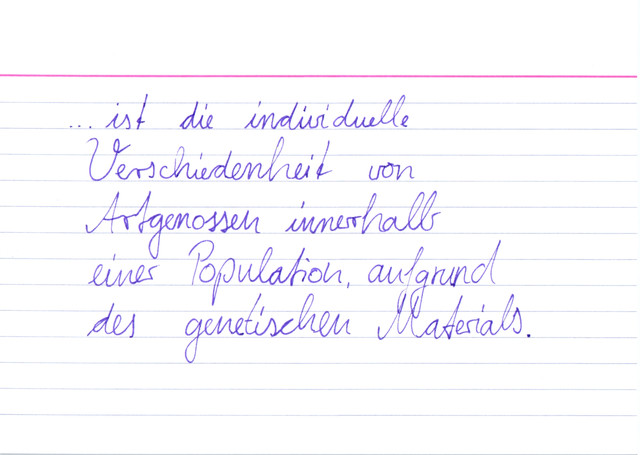 ... ist die individuelle
Verschiedenheit von
Artgenossen innerhalb
einer Population, aufgrund
des genetischen Materials.